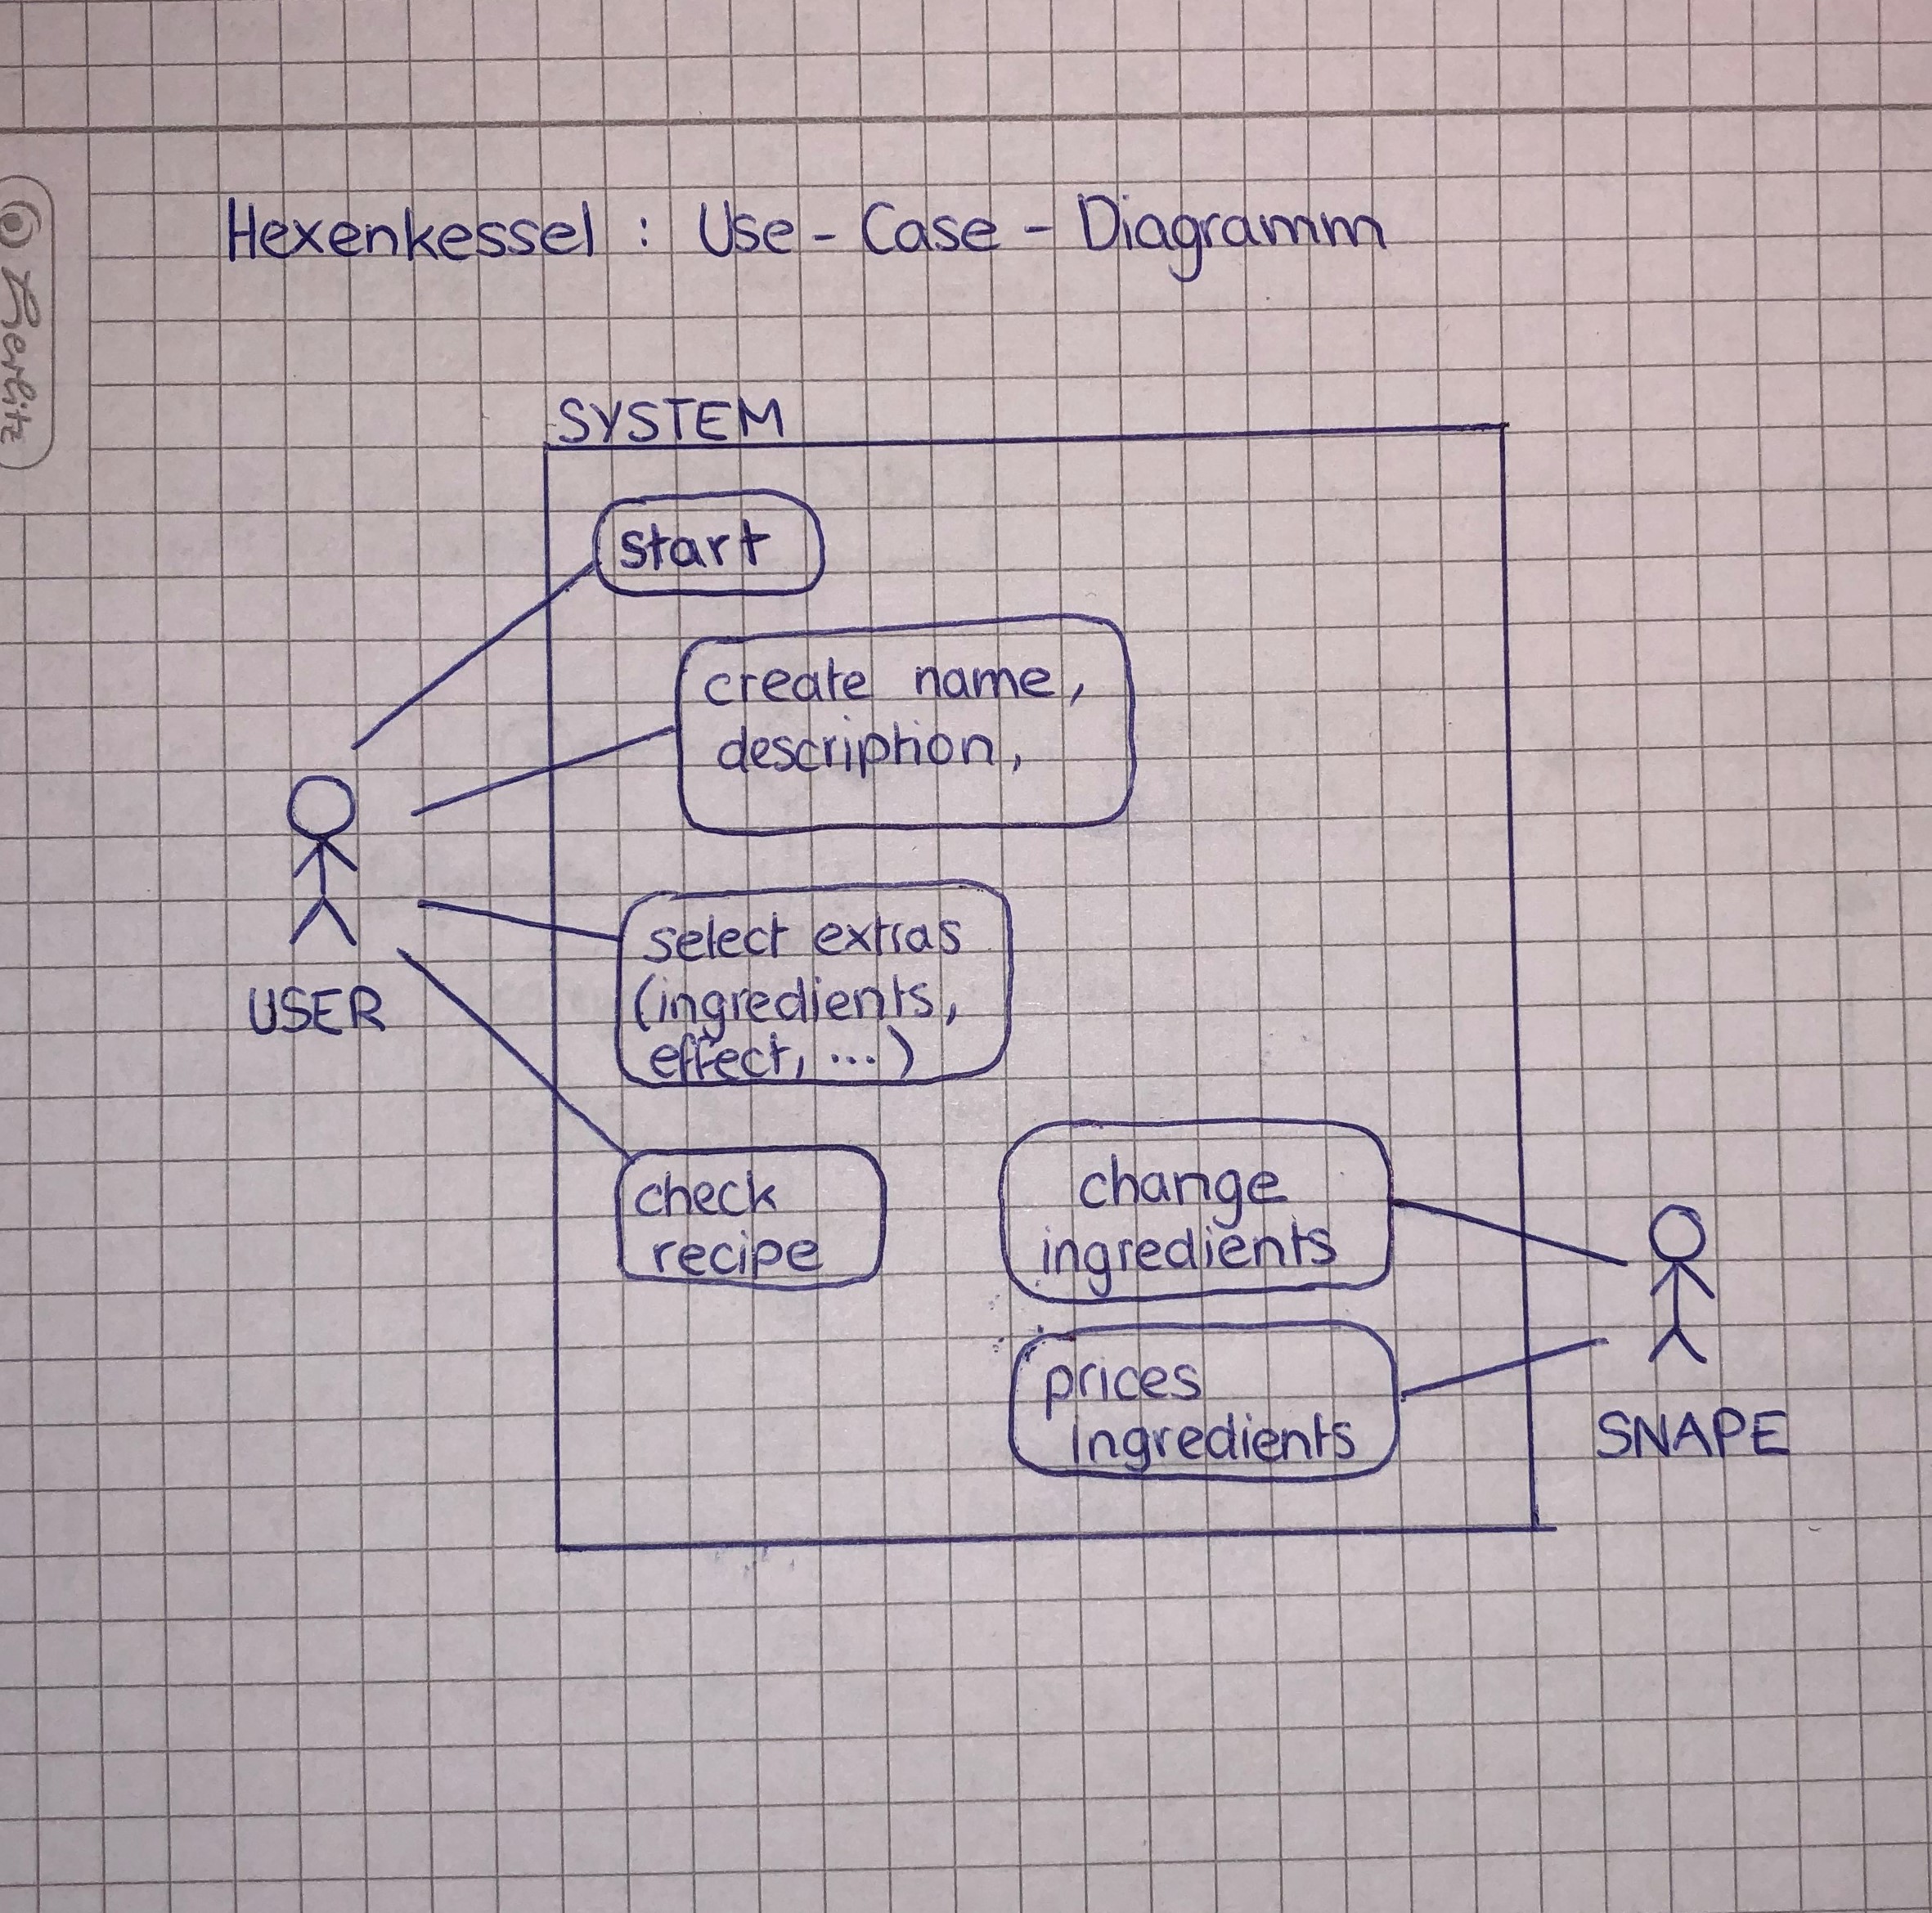 Herlitz
Hexenkessel : Use - Case - Diagramm
SYSTEM
start
create name,
description,
select extras
(ingredients,
effect, ...)
USER
check
recipe
change
ingredients
prices
ingredients
SNAPE